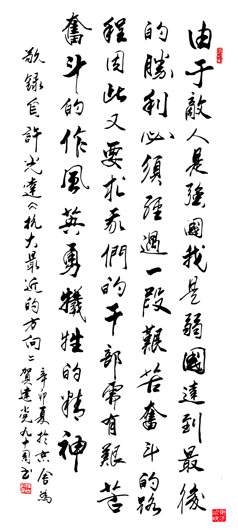 由于敵人是強國我是弱國達到最後
的勝利必須經過一段艱苦奮斗的路
程因此又要求我們的干部需有艱苦
奮斗的作風英勇犧牲的精神
敬録自許光達《抗大最近的方向》
辛卯夏於京舍為
賀建党九十周年書